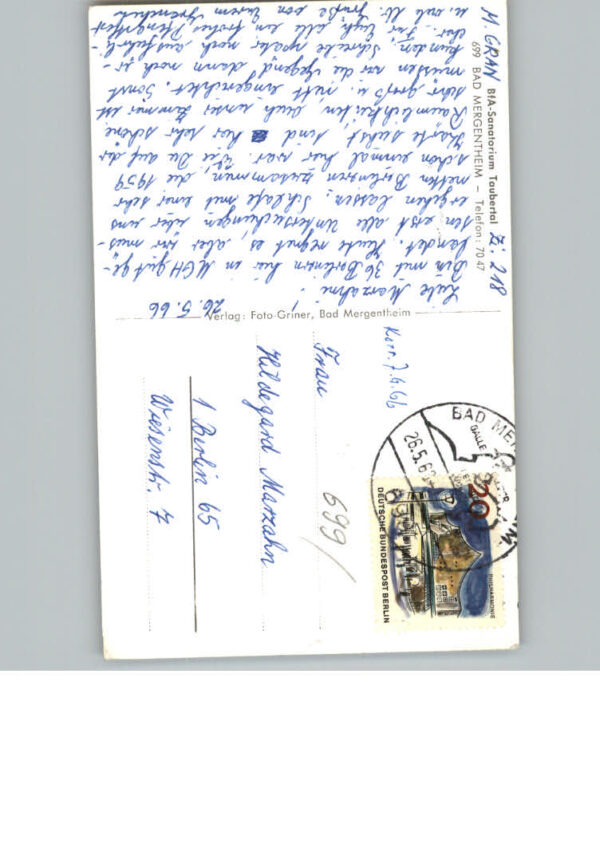 M. GRAN BfA-Sanatorium Taubertal Zi. 218
699 BAD MERGENTHEIM – Telefon: 70 47
26.5.66
Liebe Marzahn's!
Bin mit 36 Berlinern hier in MGH gut ge-
landet. Heute regnet es, aber wir mus-
sen erst alle Untersuchungen über uns
ergehen lassen. Schlafe mit einer sehr
netten Berlinerin zusammen, die 1959
schon einmal hier war. Wie Du auf der
Karte siehst, sind hier sehr schöne
Räumlichkeiten, auch unser Zimmer ist
sehr groß u. nett eingerichtet. Sonst
müssen wir die Gegend dann noch er-
kunden. Schreibe später noch ausführli-
cher. Für Euch alle ein frohes Pfingstfest
u. viele lb. Grüße von Eurem Gränchen
Verlag: Foto-Griner, Bad Mergentheim
Korr. 7.6.66
Frau
Hildegard Marzahn
1 Berlin 65
Wiesenstr. 7
699/
BAD MER
26.5.6
20
PHILHARMONIE
DEUTSCHE BUNDESPOST BERLIN